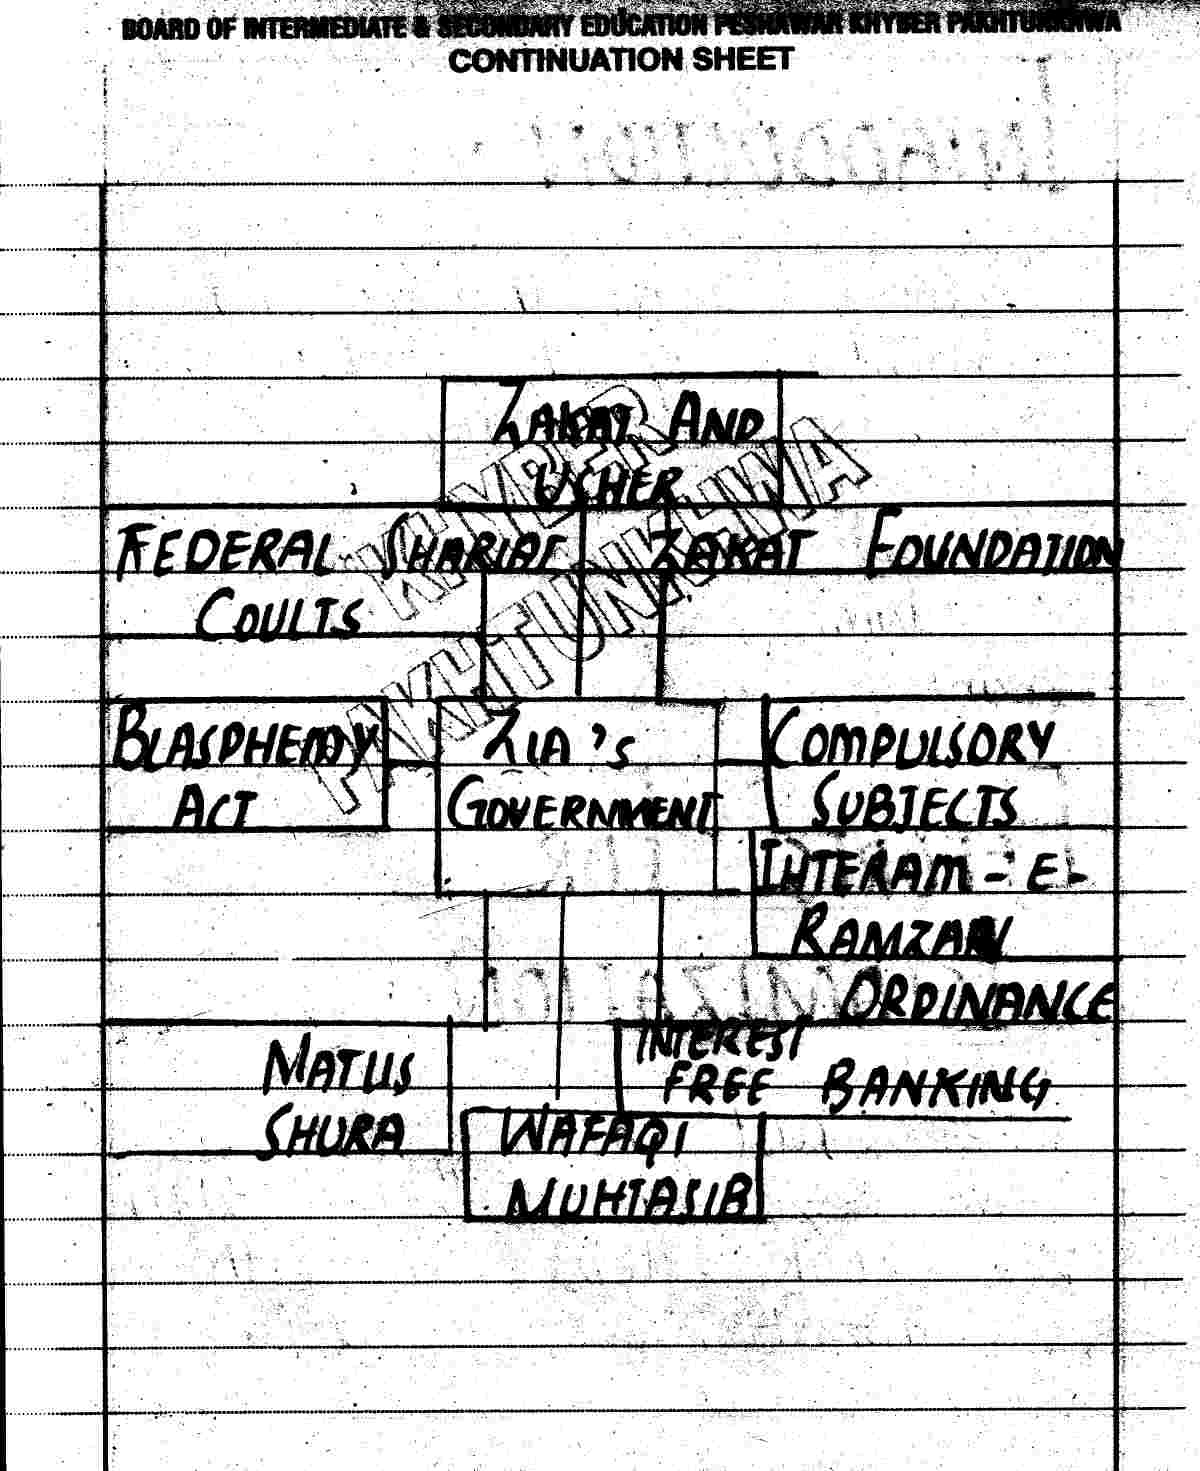 BOARD OF INTERMEDIATE & SECONDARY EDUCATION PESHAWAR KHYBER PAKHTUNKHWA
CONTINUATION SHEET
ZAKAT AND
USHER
FEDERAL SHARIAT
COULTS
ZAKAT FOUNDATION
KHYBER
PAKHTUNKHWA
BLASPHEMY
ACT
ZIA'S
GOVERNMENT
COMPULSORY
SUBJECTS
IHTERAM-E-
RAMZAN
ORDINANCE
MATUS
SHURA
INTEREST
FREE BANKING
WAFAQI
MUHTASIB